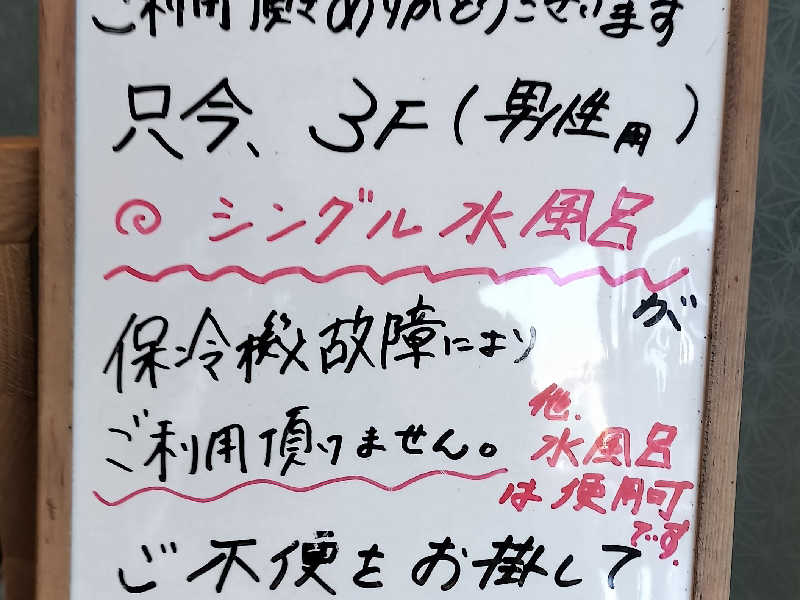 ご利用頂きありがとうございます
只今、3F(男性用)
◎シングル水風呂
が
保冷機故障により
ご利用頂けません。
他、
水風呂
は使用可
です.
ご不便をお掛して